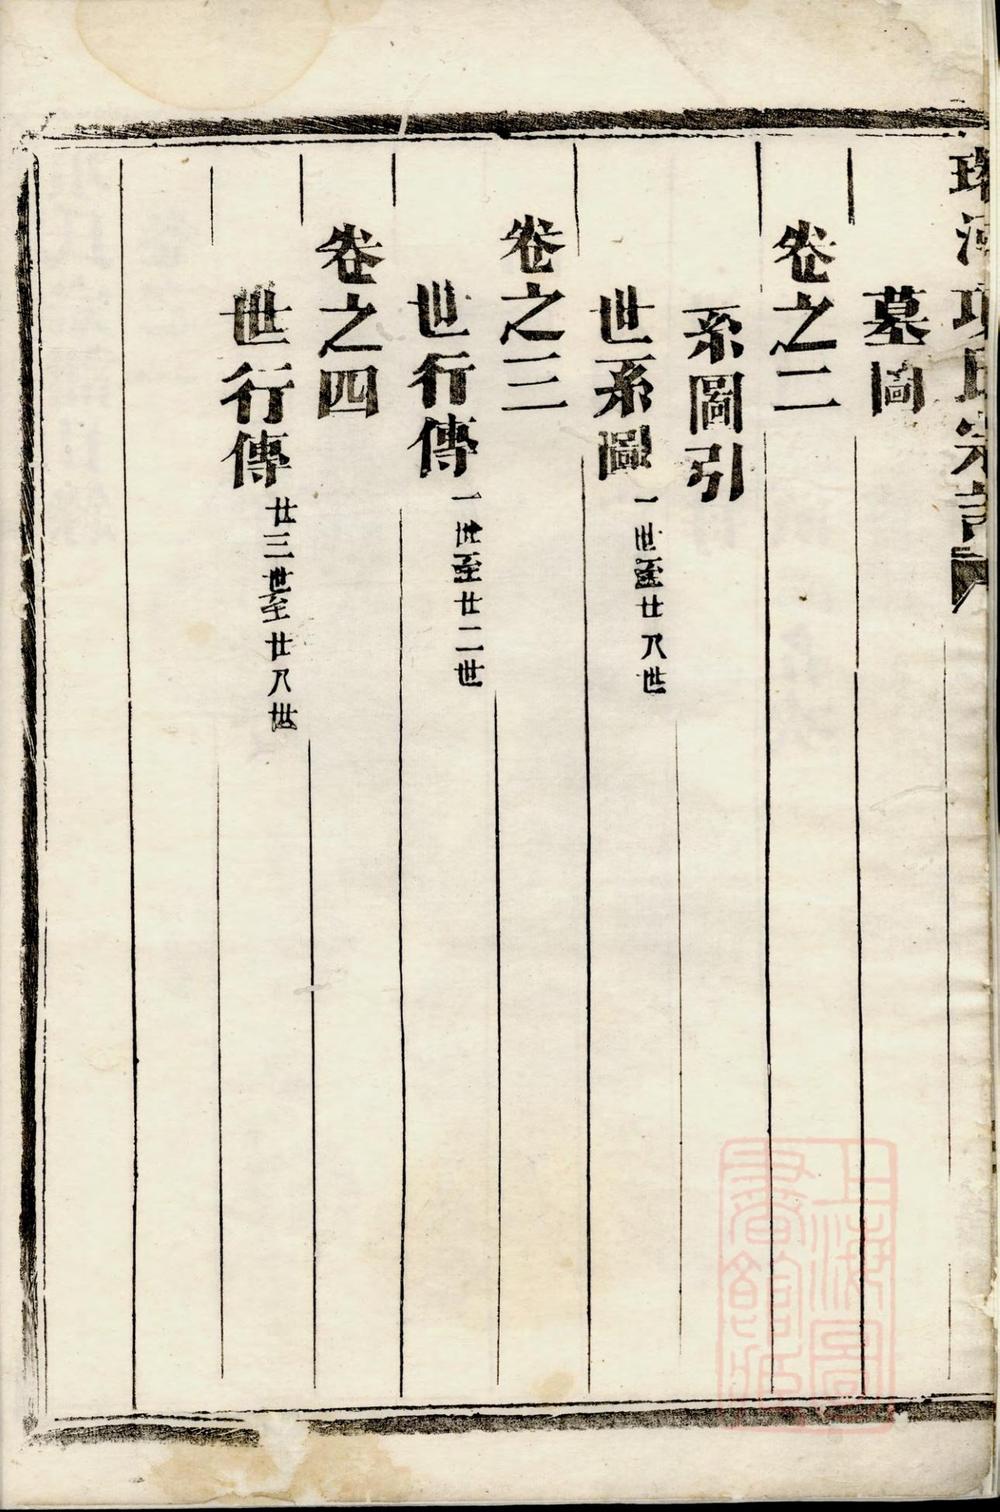 河項氏宗譜
墓圖
卷之二
系圖引
世系圖 一世至廿八世
卷之三
世行傳 一世至廿二世
卷之四
世行傳 廿三世至廿八世
上海圖書館藏